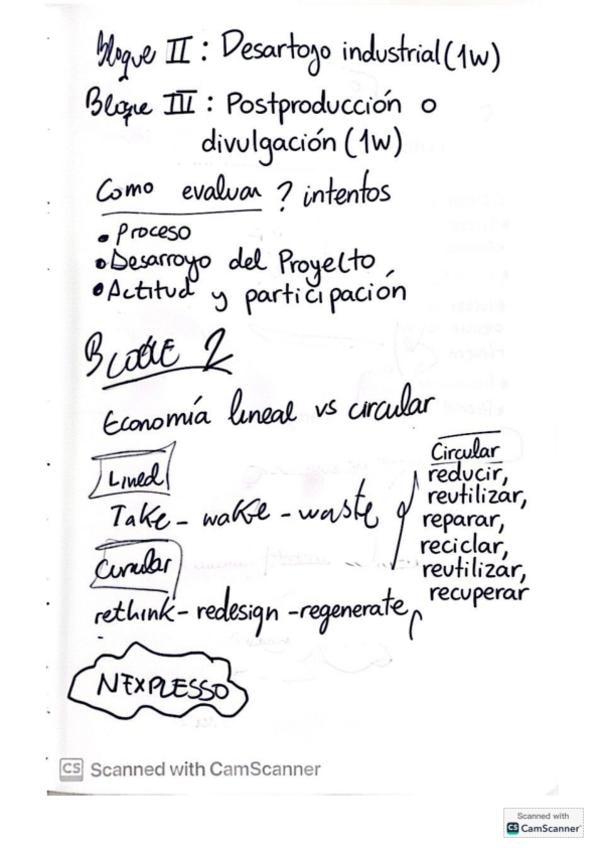 Bloque II: Desartojo industrial (1w)
Bloque III: Postproducción o
divulgación (1w)
Como evaluar? intentos
• Proceso
• Desarroyo del Proyecto
• Actitud y participación
BLOQUE 2
Economía lineal vs circular
Lineal
Take - wake - waste
Circular
rethink - redesign - regenerate
Circular
reducir,
reutilizar,
reparar,
reciclar,
reutilizar,
recuperar
NEXPLESSO
CS Scanned with CamScanner
Scanned with
CS CamScanner